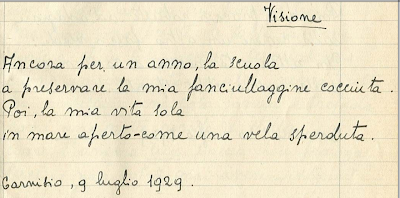 Visione
Ancora per un anno, la scuola
a preservare la mia fanciullaggine cocciuta.
Poi, la mia vita sola
in mare aperto-come una vela sperduta.
Carnisio, 9 luglio 1929.